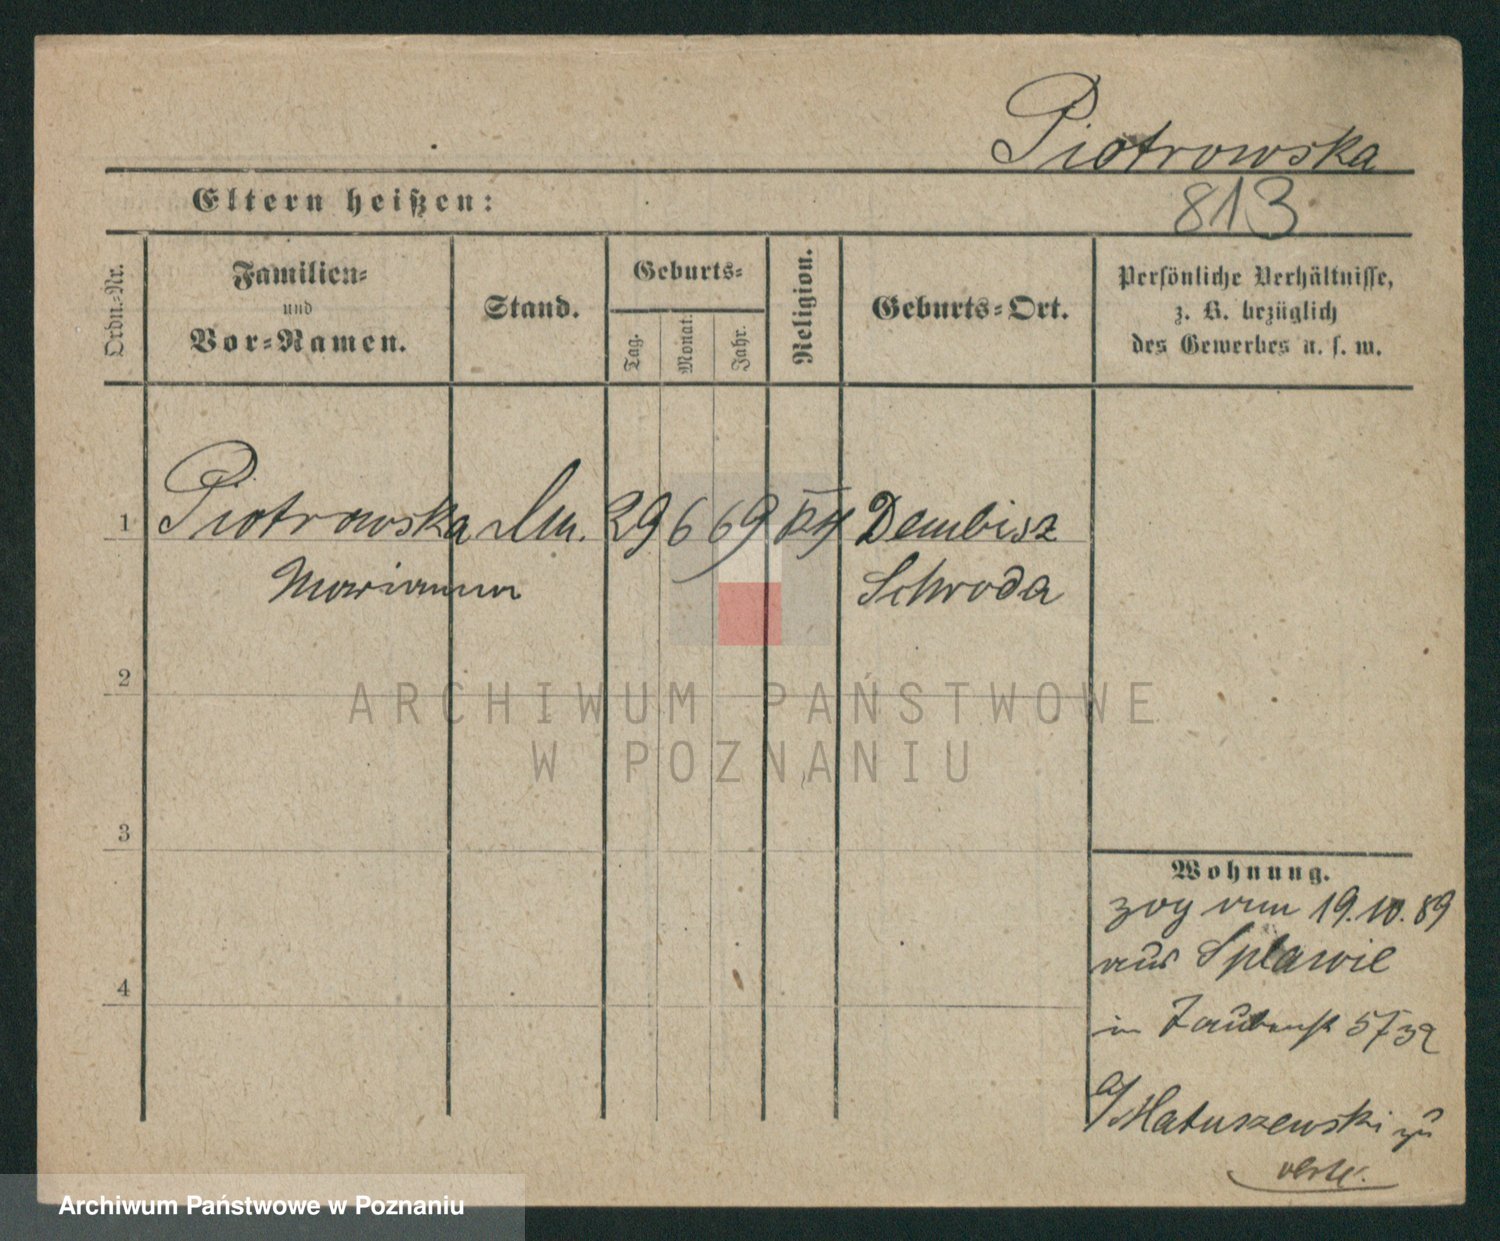 Piotrowska
813
Eltern heißen:
Ordn.-Nr.
Familien-
und
Vor-Namen.
Stand.
Geburts-
Tag.
Monat.
Jahr.
Religion.
Geburts-Ort.
Persönliche Verhältnisse,
z. B. bezüglich
des Gewerbes u. s. w.
1 Piotrowska 29 6 69 Dembisz
Marianna Schroda
2
ARCHIWUM PAŃSTWOWE
W POZNANIU
3
Wohnung.
zog am 19.10.89
aus Splawie
4
in
Matuszewski zu
Archiwum Państwowe w Poznaniu